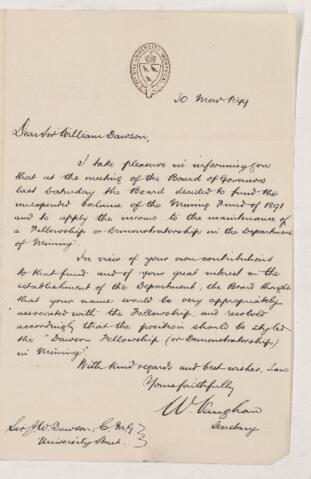 30 Nov 1894
Dear Sir William Dawson,
I take pleasure in informing you
that at the meeting of the Board of Governors
last Saturday the Board decided to fund the
unexpended balance of the Mining Fund of 1891
and to apply the income to the maintenance of
a Fellowship or Demonstratorship in the Department
of Mining.
In view of your own contributions
to that fund and of your great interest in the
establishment of the Department, the Board thought
that your name would be very appropriately
associated with the Fellowship, and resolved
accordingly that the position should be styled
the "Dawson Fellowship (or Demonstratorship,)
in Mining".
With kind regards and best wishes, I am
Yours faithfully
W. Vaughan
Secretary
Sir J. W. Dawson, C.M.G.
University Street.